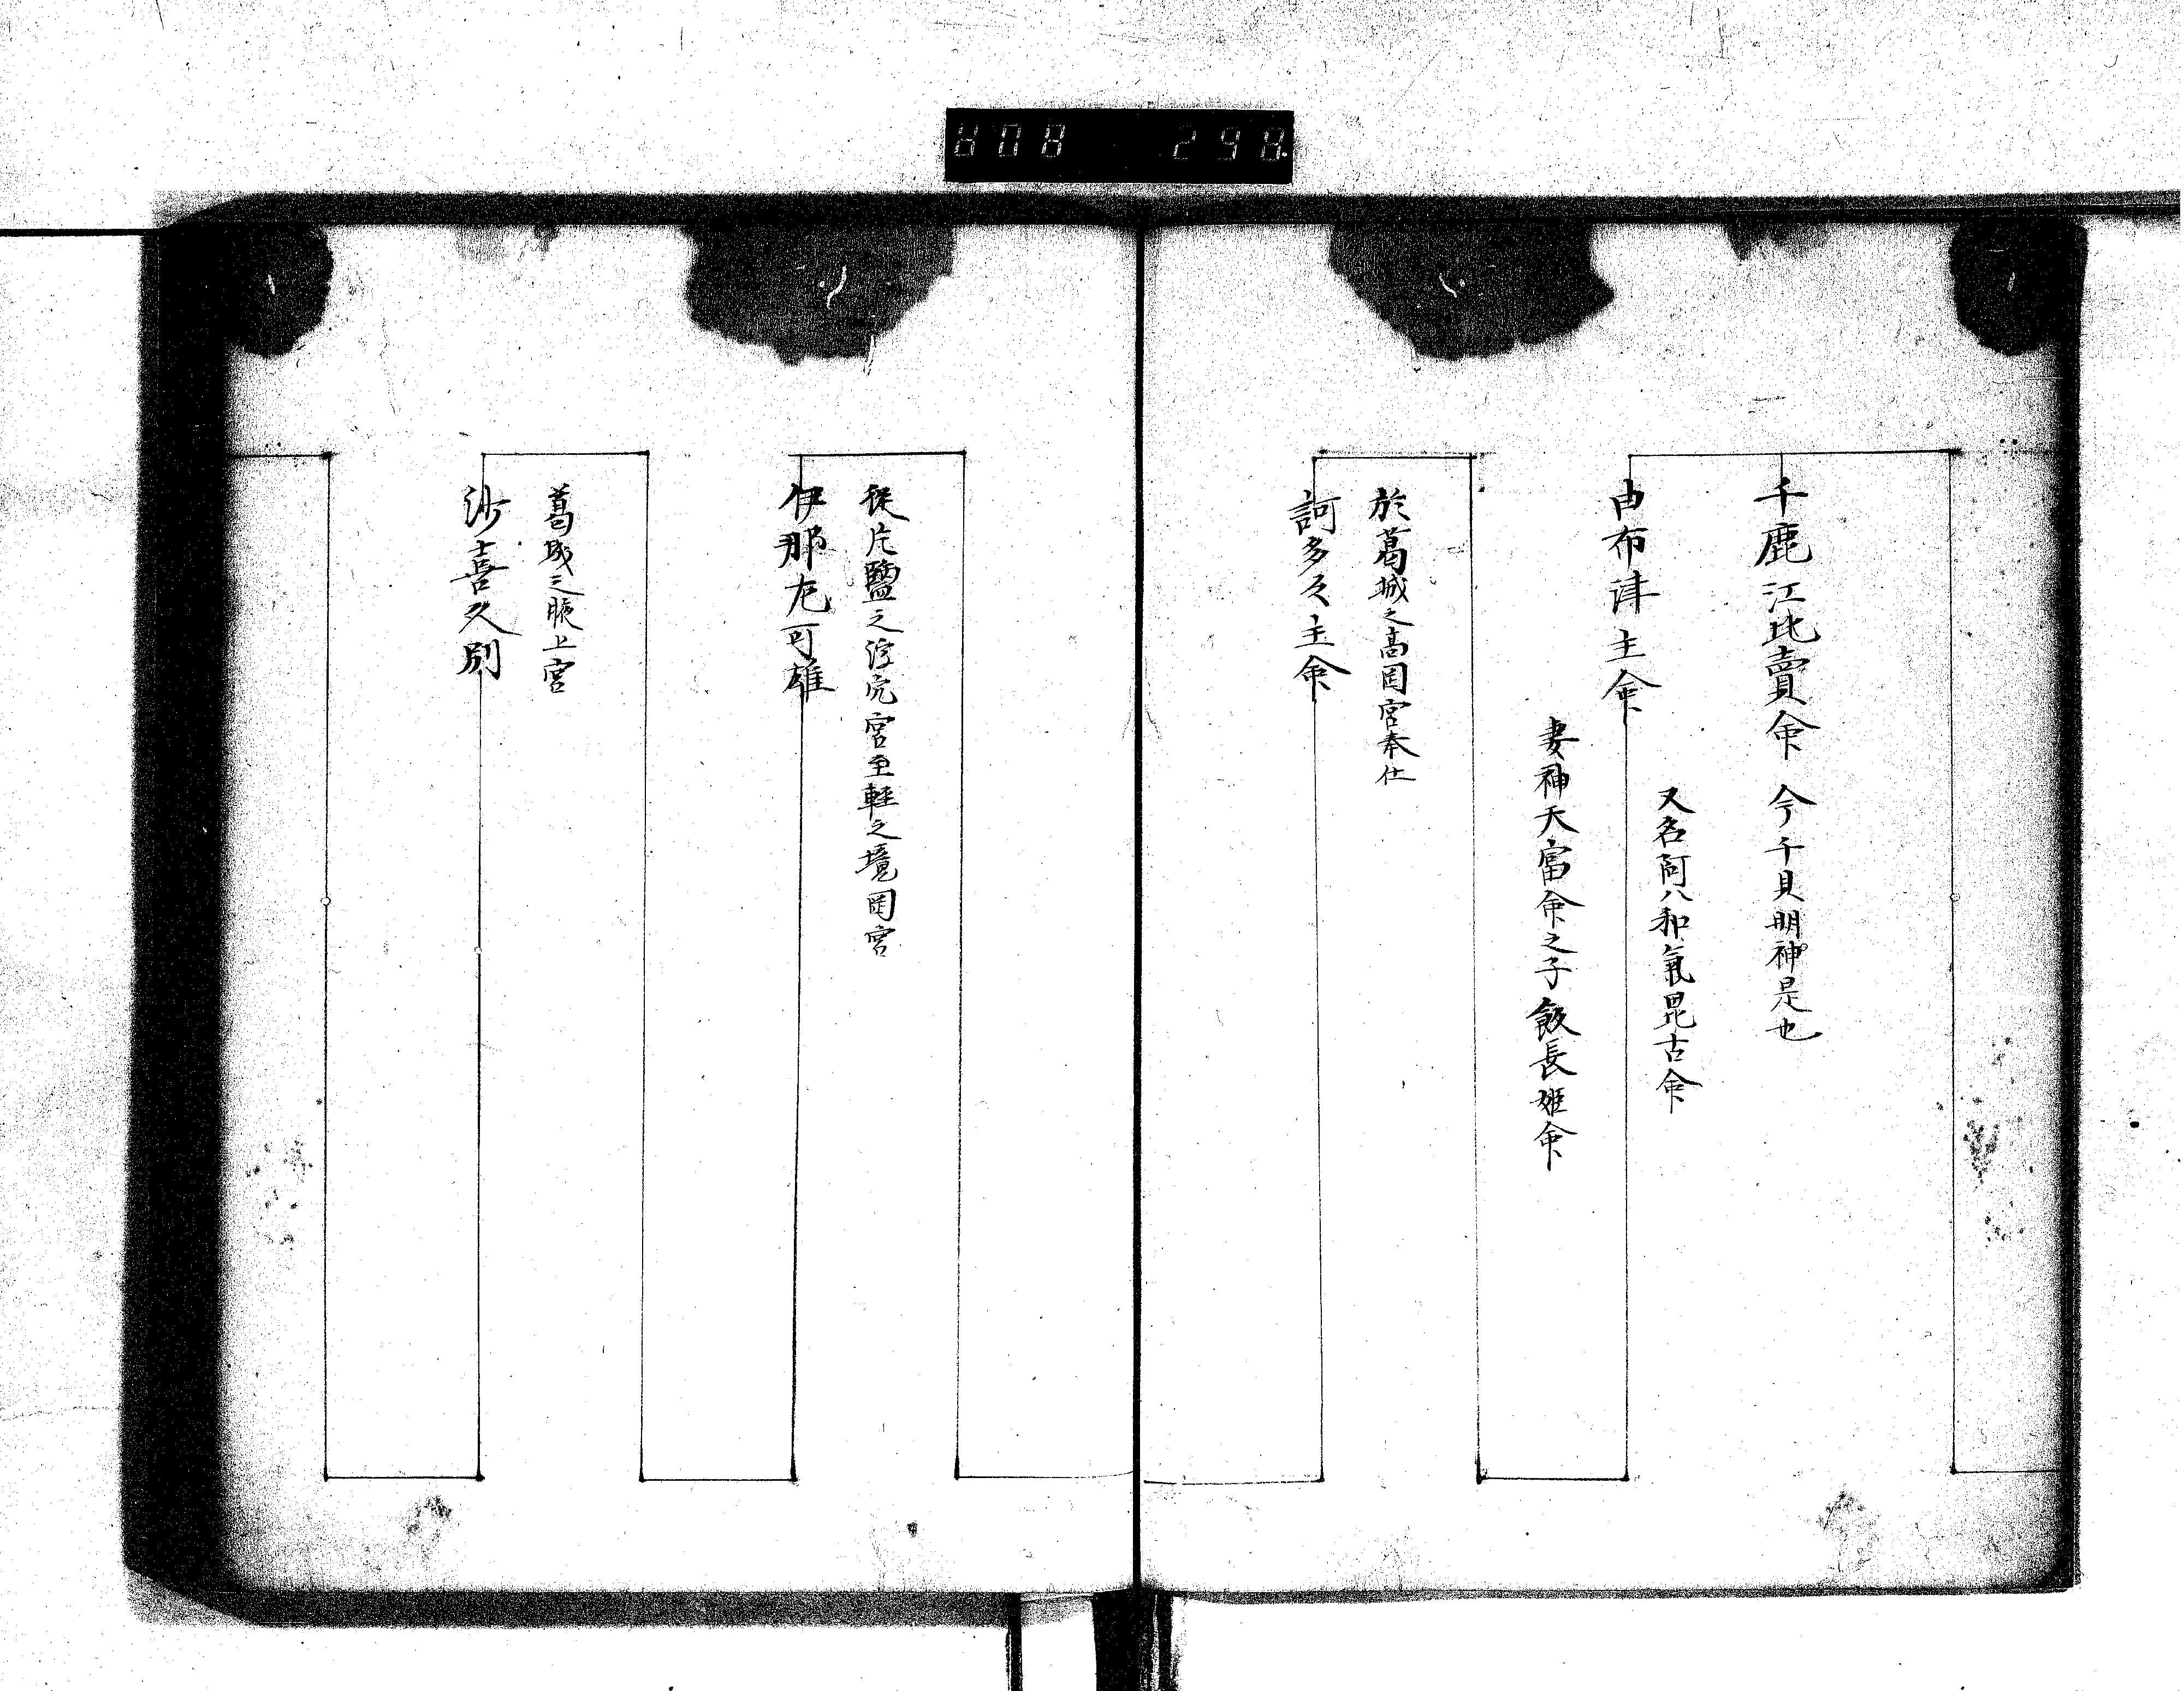 千鹿江比賣命 今千貝明神是也
由布津主命
又名阿八和氣毘古命
妻神天富命之子飯長姫命
於葛城之高岡宮奉仕
訶多々主命
従片鹽之浮穴宮至軽之境岡宮
伊那左可雄
葛城之腋上宮
沙喜久別